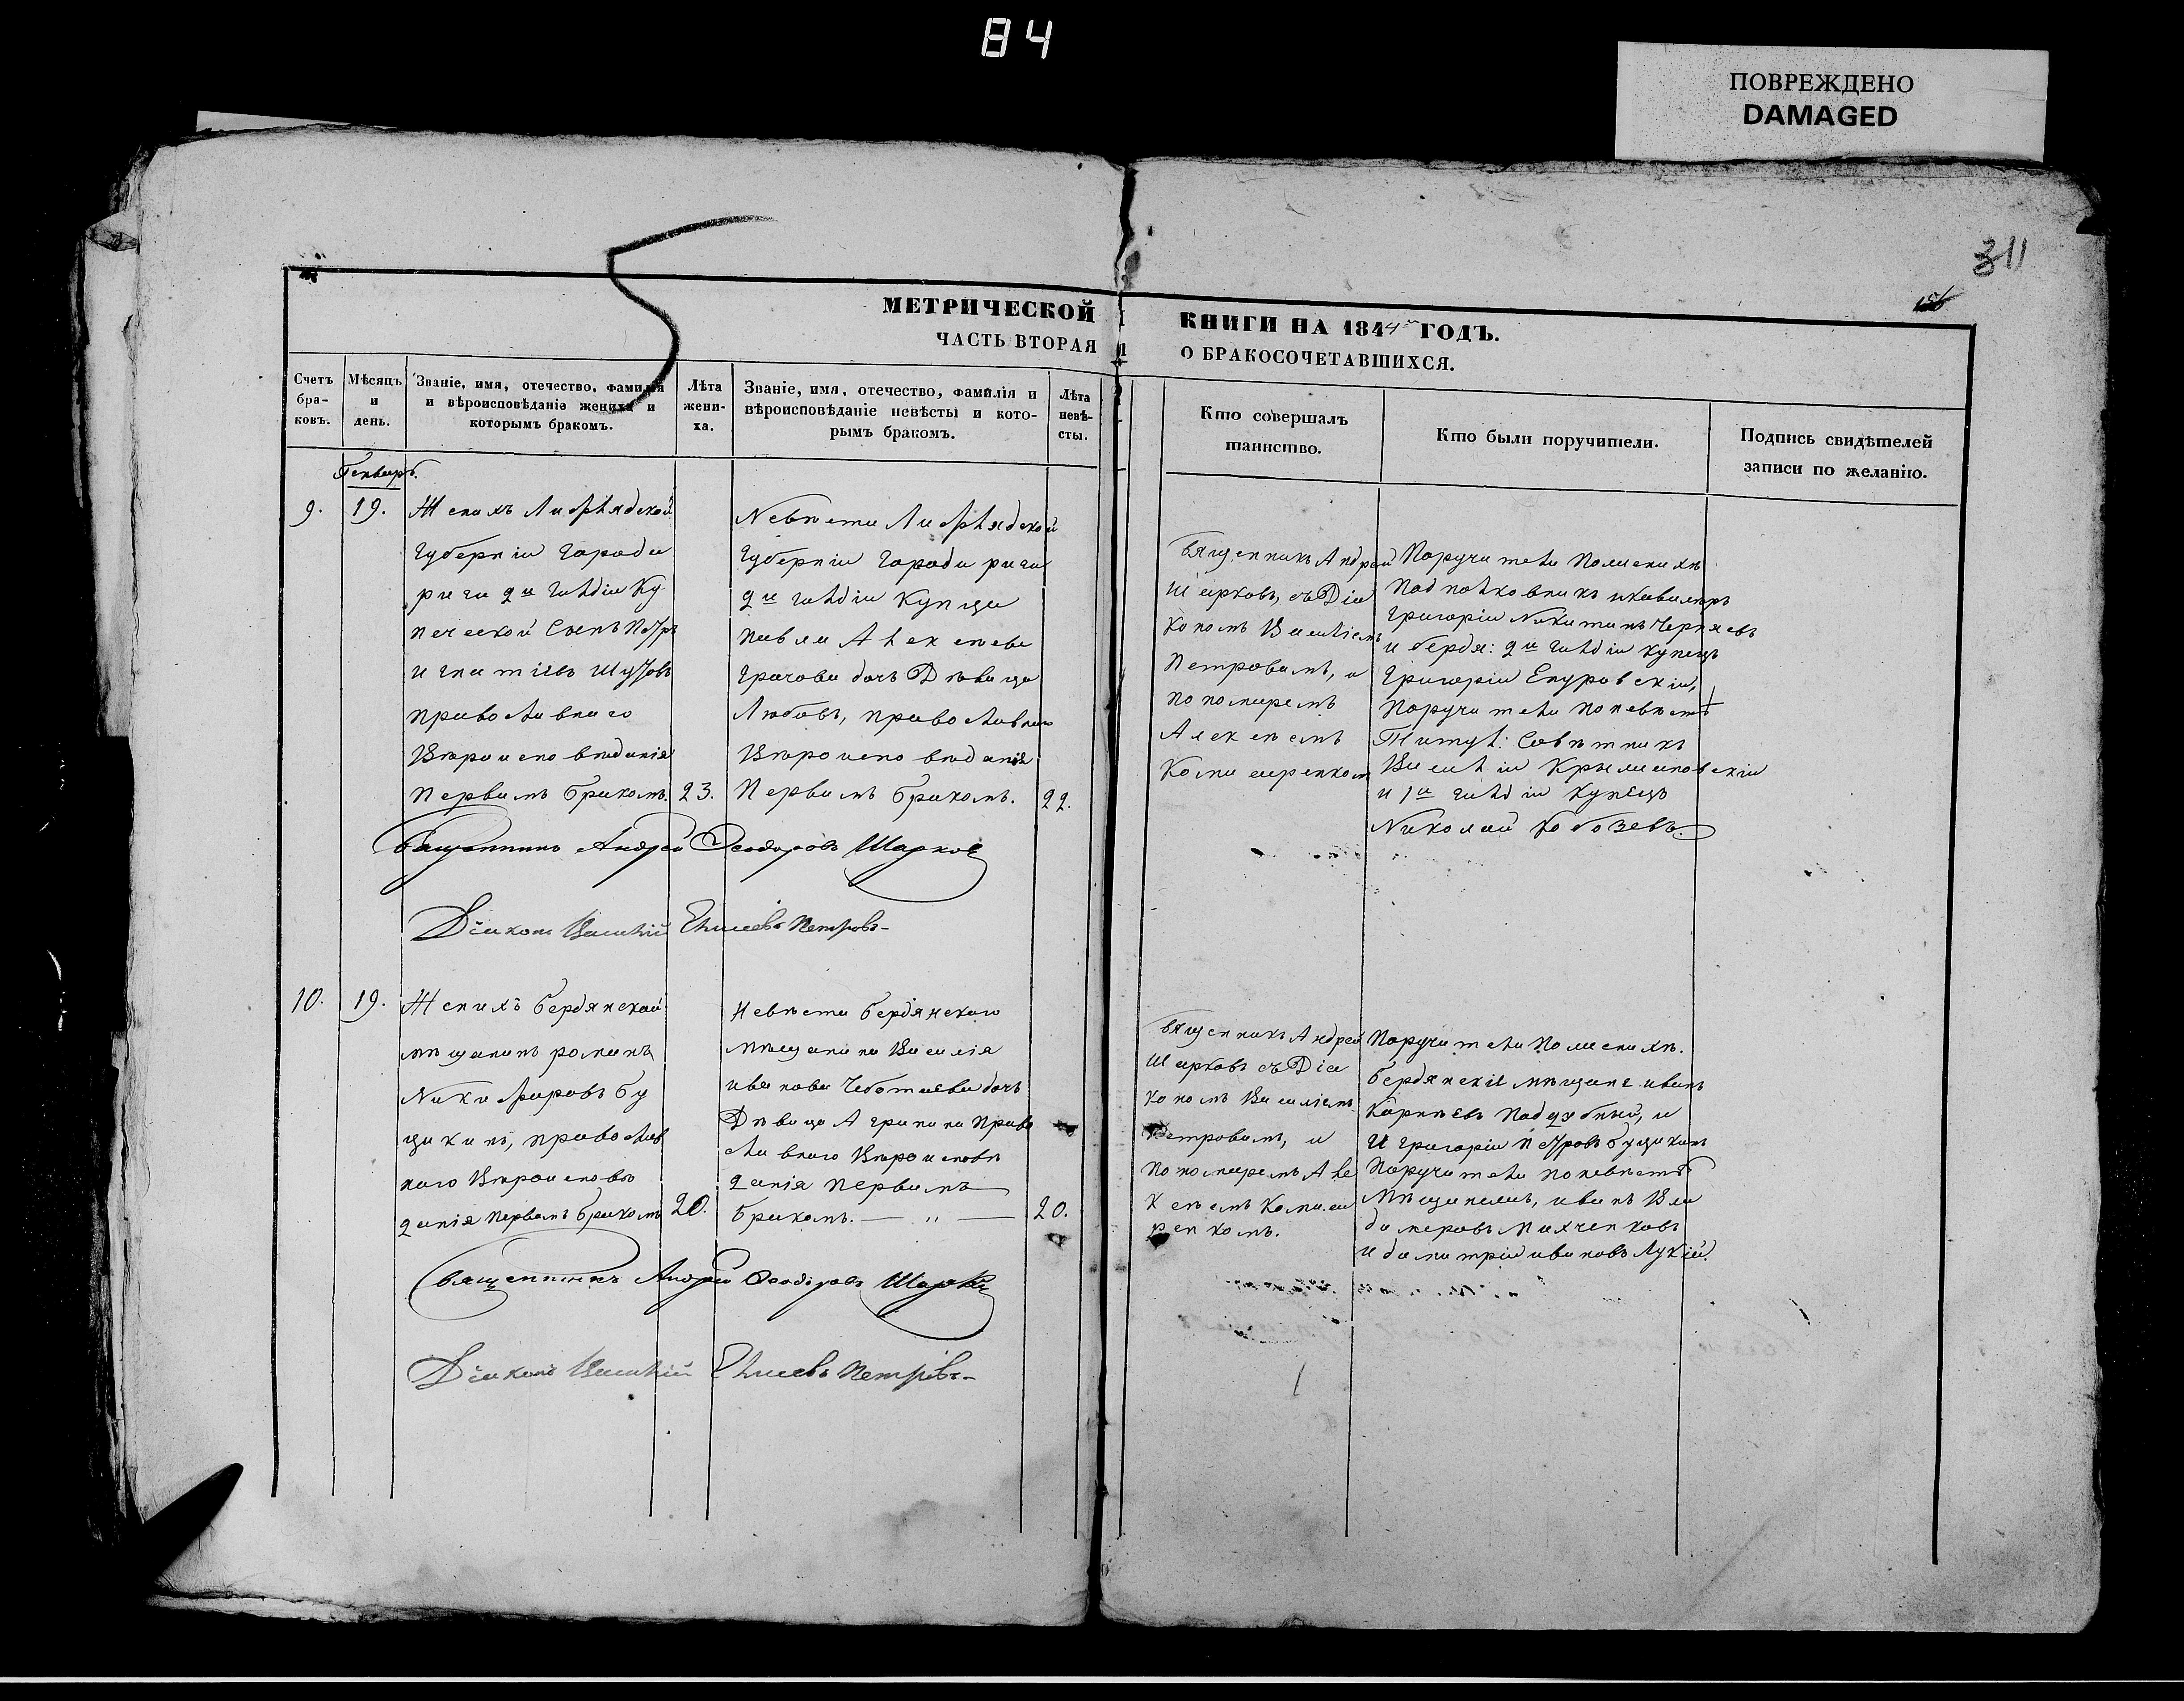 84
ПОВРЕЖДЕНО
DAMAGED
311
МЕТРИЧЕСКОЙ КНИГИ НА 1844й ГОДЪ.
ЧАСТЬ ВТОРАЯ О БРАКОСОЧЕТАВШИХСЯ.
Счетъ бра-ковъ.
Мѣсяцъ и день.
Званіе, имя, отечество, фамилія
и вѣроисповѣданіе жениха и
которымъ бракомъ.
Лѣта жени-ха.
Званіе, имя, отечество, фамилія и
вѣроисповѣданіе невѣсты и кото-
рымъ бракомъ.
Лѣта невѣ-сты.
Кто совершалъ
таинство.
Кто были поручители.
Подпись свидѣтелей
записи по желанію.
Генварь.
9.
19.
Женихъ Лифлядской
Губерніи Города
риги 2й гилдіи Ку
печеской Сынъ Петръ
Игнатіевъ
православнаго
Вѣроисповѣданія
Первымъ бракомъ.
23.
Невѣста Лифлядской
Губерніи Города риги
2й гилдіи Купца
павла Алексѣева
Грачова дочь Дѣвица
Любовь, православнаго
Вѣроисповѣданія
Первымъ бракомъ.
22.
Священникъ Андрей
Шарковъ, съ Діа
кономъ Василіемъ
Петровымъ, и
пономаремъ
Алексѣемъ
Комисаренком
Поручители По женихѣ
Подполковникъ икавалеръ
Григорій Никитинъ Черняевъ
и бердя: 2й гилдіи купецъ
Григорій
Поручители по невѣстѣ
Титул: Совѣтникъ
Василій
и 1й гилдіи Купецъ
Николай Кобозевъ.
Священникъ Андрей Феодоровъ Шарковъ
Діаконъ Василій Елисеевъ Петровъ
10.
19.
Женихъ бердянской
мѣщанинъ романъ
Никифоровъ бу
цикинъ, православ
наго Вѣроисповѣ
данія первымъ бракомъ
20.
Невѣста бердянскаго
мѣщанина Василія
иванова Чеботаева дочь
Дѣвица Агрипина Право
славнаго Вѣроисповѣ
данія Первымъ
бракомъ. — " —
20.
Священникъ Андрей
Шарковъ съ Діа
кономъ Василіемъ
Петровымъ, и
пономаремъ Але
ксѣемъ Комиса
ренкомъ.
Поручители По женихѣ.
бердянскіе мѣщане иванъ
Карнѣевъ Поддубный, и
И Григорій Петровъ буцикинъ
Поручители по невѣстѣ
Мѣщанелиъ, иванъ Вла
димеровъ Михченковъ
и димитрій ивановъ Лукій.
Священникъ Андрей Феодоровъ Шарковъ
Діаконъ Василій Елисеевъ Петровъ